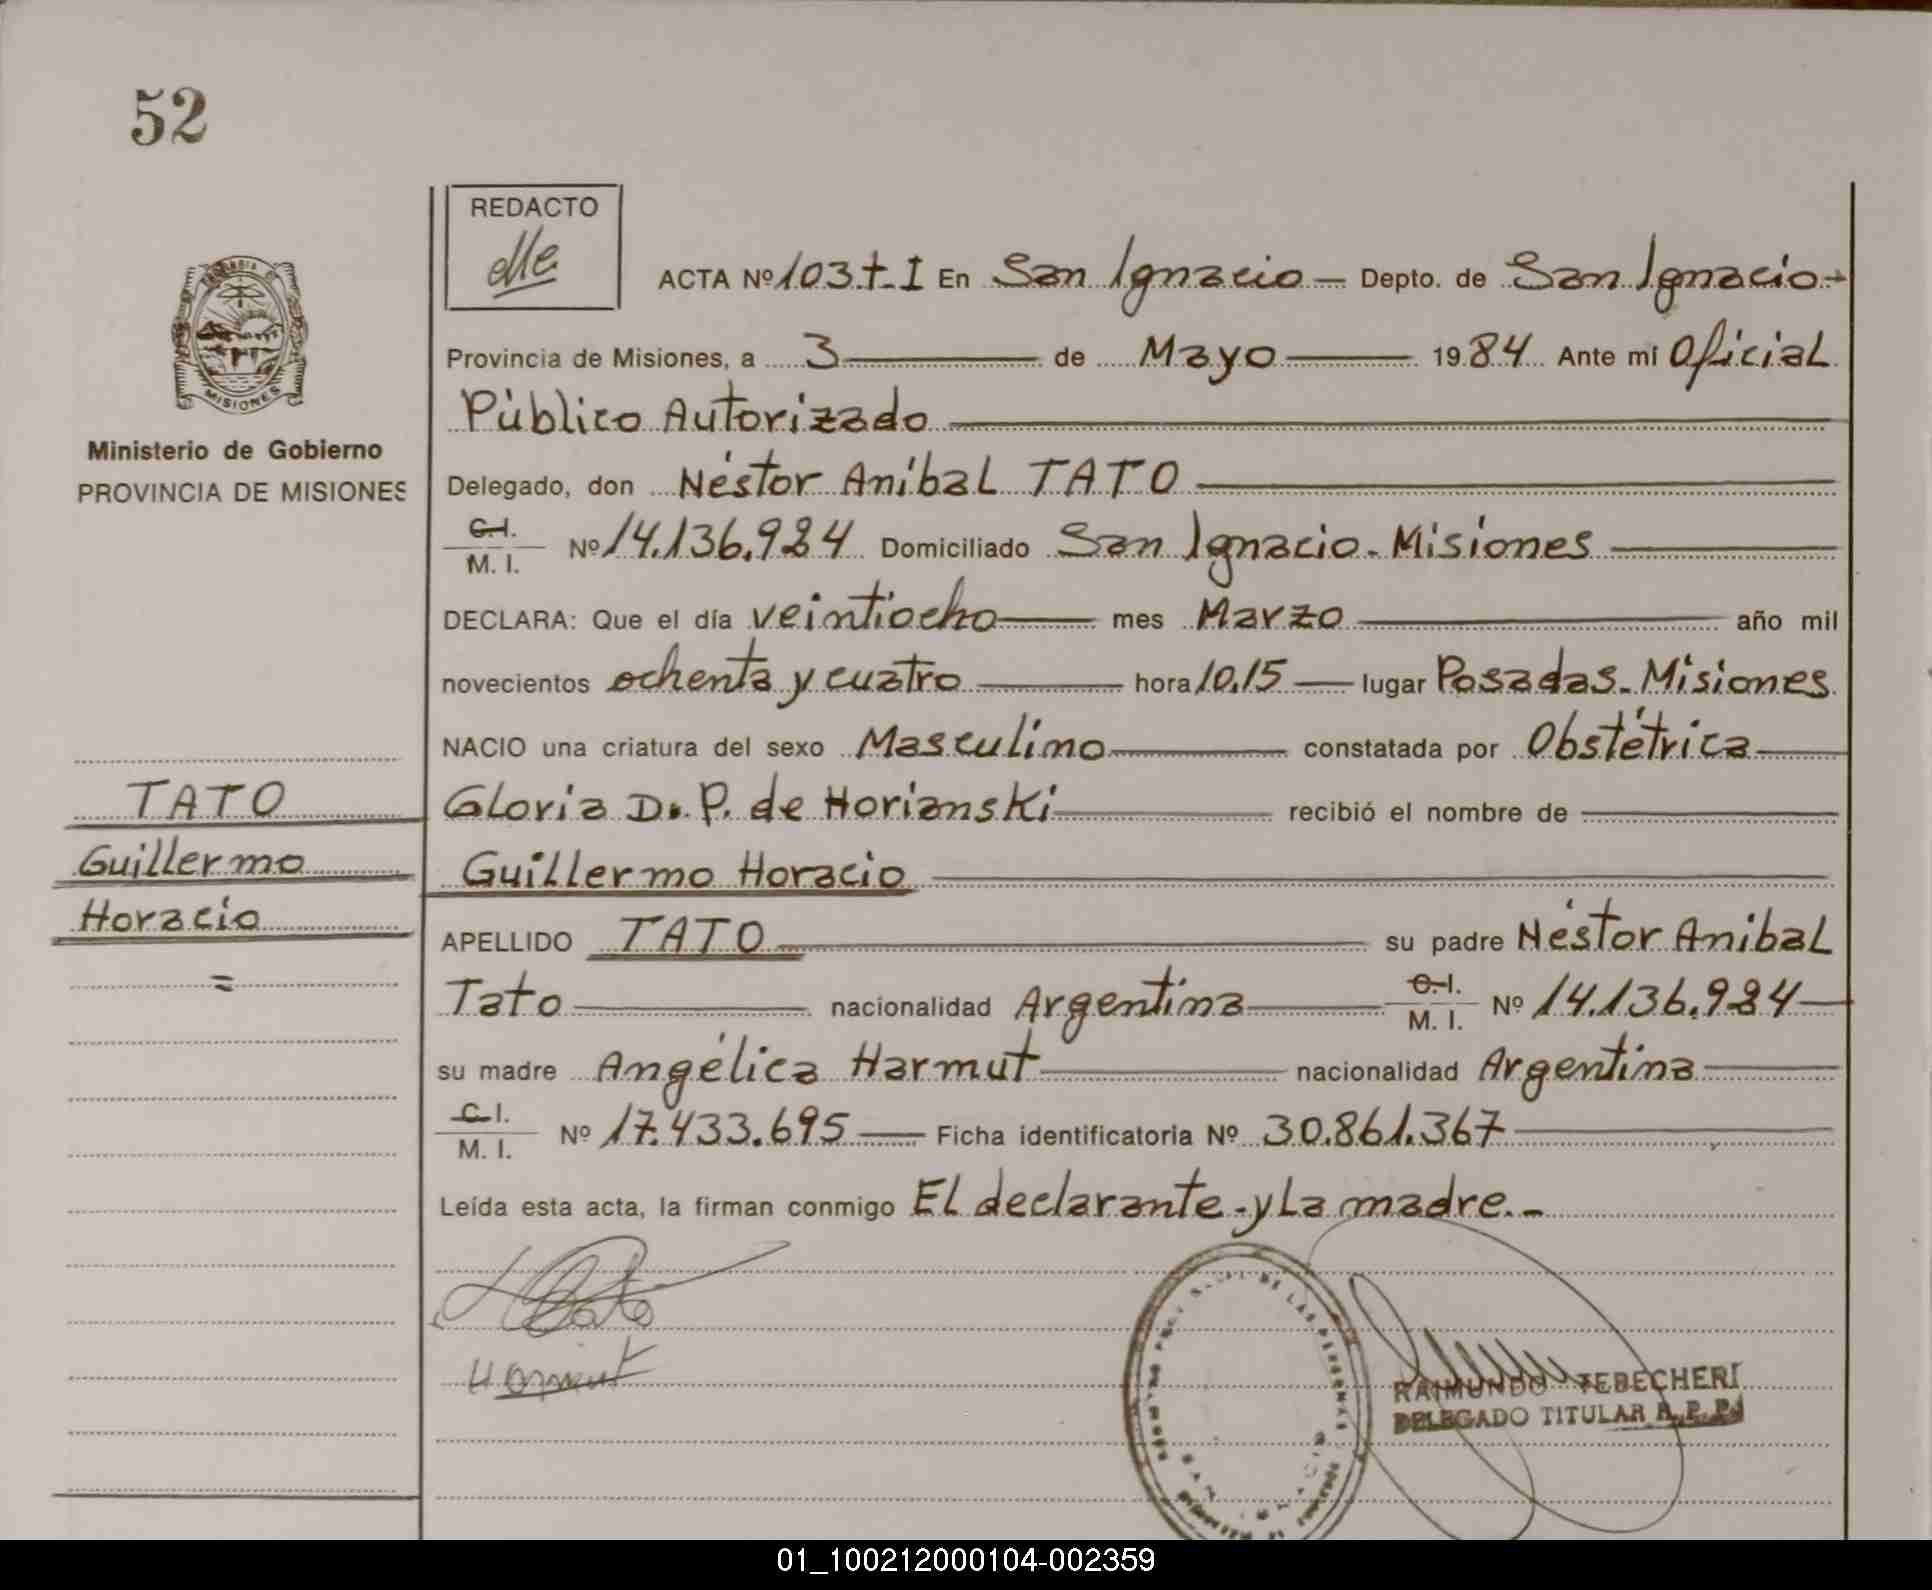 52
REDACTO
ACTA Nº 103.t-I En San Ignacio — Depto. de San Ignacio -
Provincia de Misiones, a 3 de Mayo 1984 Ante mí Oficial
Público Autorizado
Ministerio de Gobierno
PROVINCIA DE MISIONES
MISIONES
Delegado, don Néstor Aníbal TATO
C.I.
M. I. Nº 14.136.984 Domiciliado San Ignacio - Misiones
DECLARA: Que el día veintiocho mes Marzo año mil
novecientos ochenta y cuatro hora 10.15 lugar Posadas - Misiones
NACIO una criatura del sexo Masculino constatada por Obstétrica
Gloria D. P. de Horianski recibió el nombre de
Guillermo Horacio
TATO
Guillermo
Horacio
=
APELLIDO TATO su padre Néstor Anibal
Tato nacionalidad Argentina C.I. M. I. Nº 14.136.984
su madre Angélica Harmut nacionalidad Argentina
C.I.
M. I. Nº 17.433.695 Ficha identificatoria Nº 30.861.367
Leída esta acta, la firman conmigo El declarante - y La madre. -
Harmut
RAIMUNDO TEBECHERI
DELEGADO TITULAR R. P. P.
01_100212000104-002359